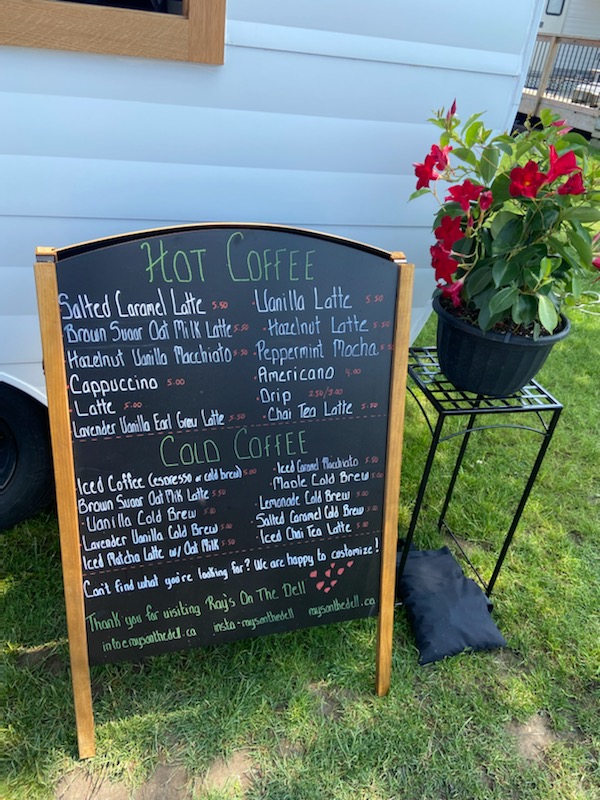 Hot Coffee
Salted Caramel Latte 5.50
Brown Sugar Oat Milk Latte 5.50
Hazelnut Vanilla Macchiato 5.50
Cappuccino 5.00
Latte 5.00
Lavender Vanilla Earl Grey Latte 5.50
Vanilla Latte 5.50
Hazelnut Latte 5.50
Peppermint Mocha 5.50
Americano
Drip 2.50/3.00
Chai Tea Latte 5.50
Cold Coffee
Iced Coffee (espresso or cold brew) 5.00
Brown Sugar Oat Milk Latte 5.50
Vanilla Cold Brew 5.00
Lavender Vanilla Cold Brew 5.00
Iced Matcha Latte w/ Oat Milk 5.50
Iced Caramel Macchiato 5.50
Maple Cold Brew 5.00
Lemonade Cold Brew 5.00
Salted Caramel Cold Brew
Iced Chai Tea Latte 5.50
Can't find what you're looking for? We are happy to customize!
Thank you for visiting Ray's On The Dell
info@raysonthedell.ca insta-raysonthedell raysonthedell.ca